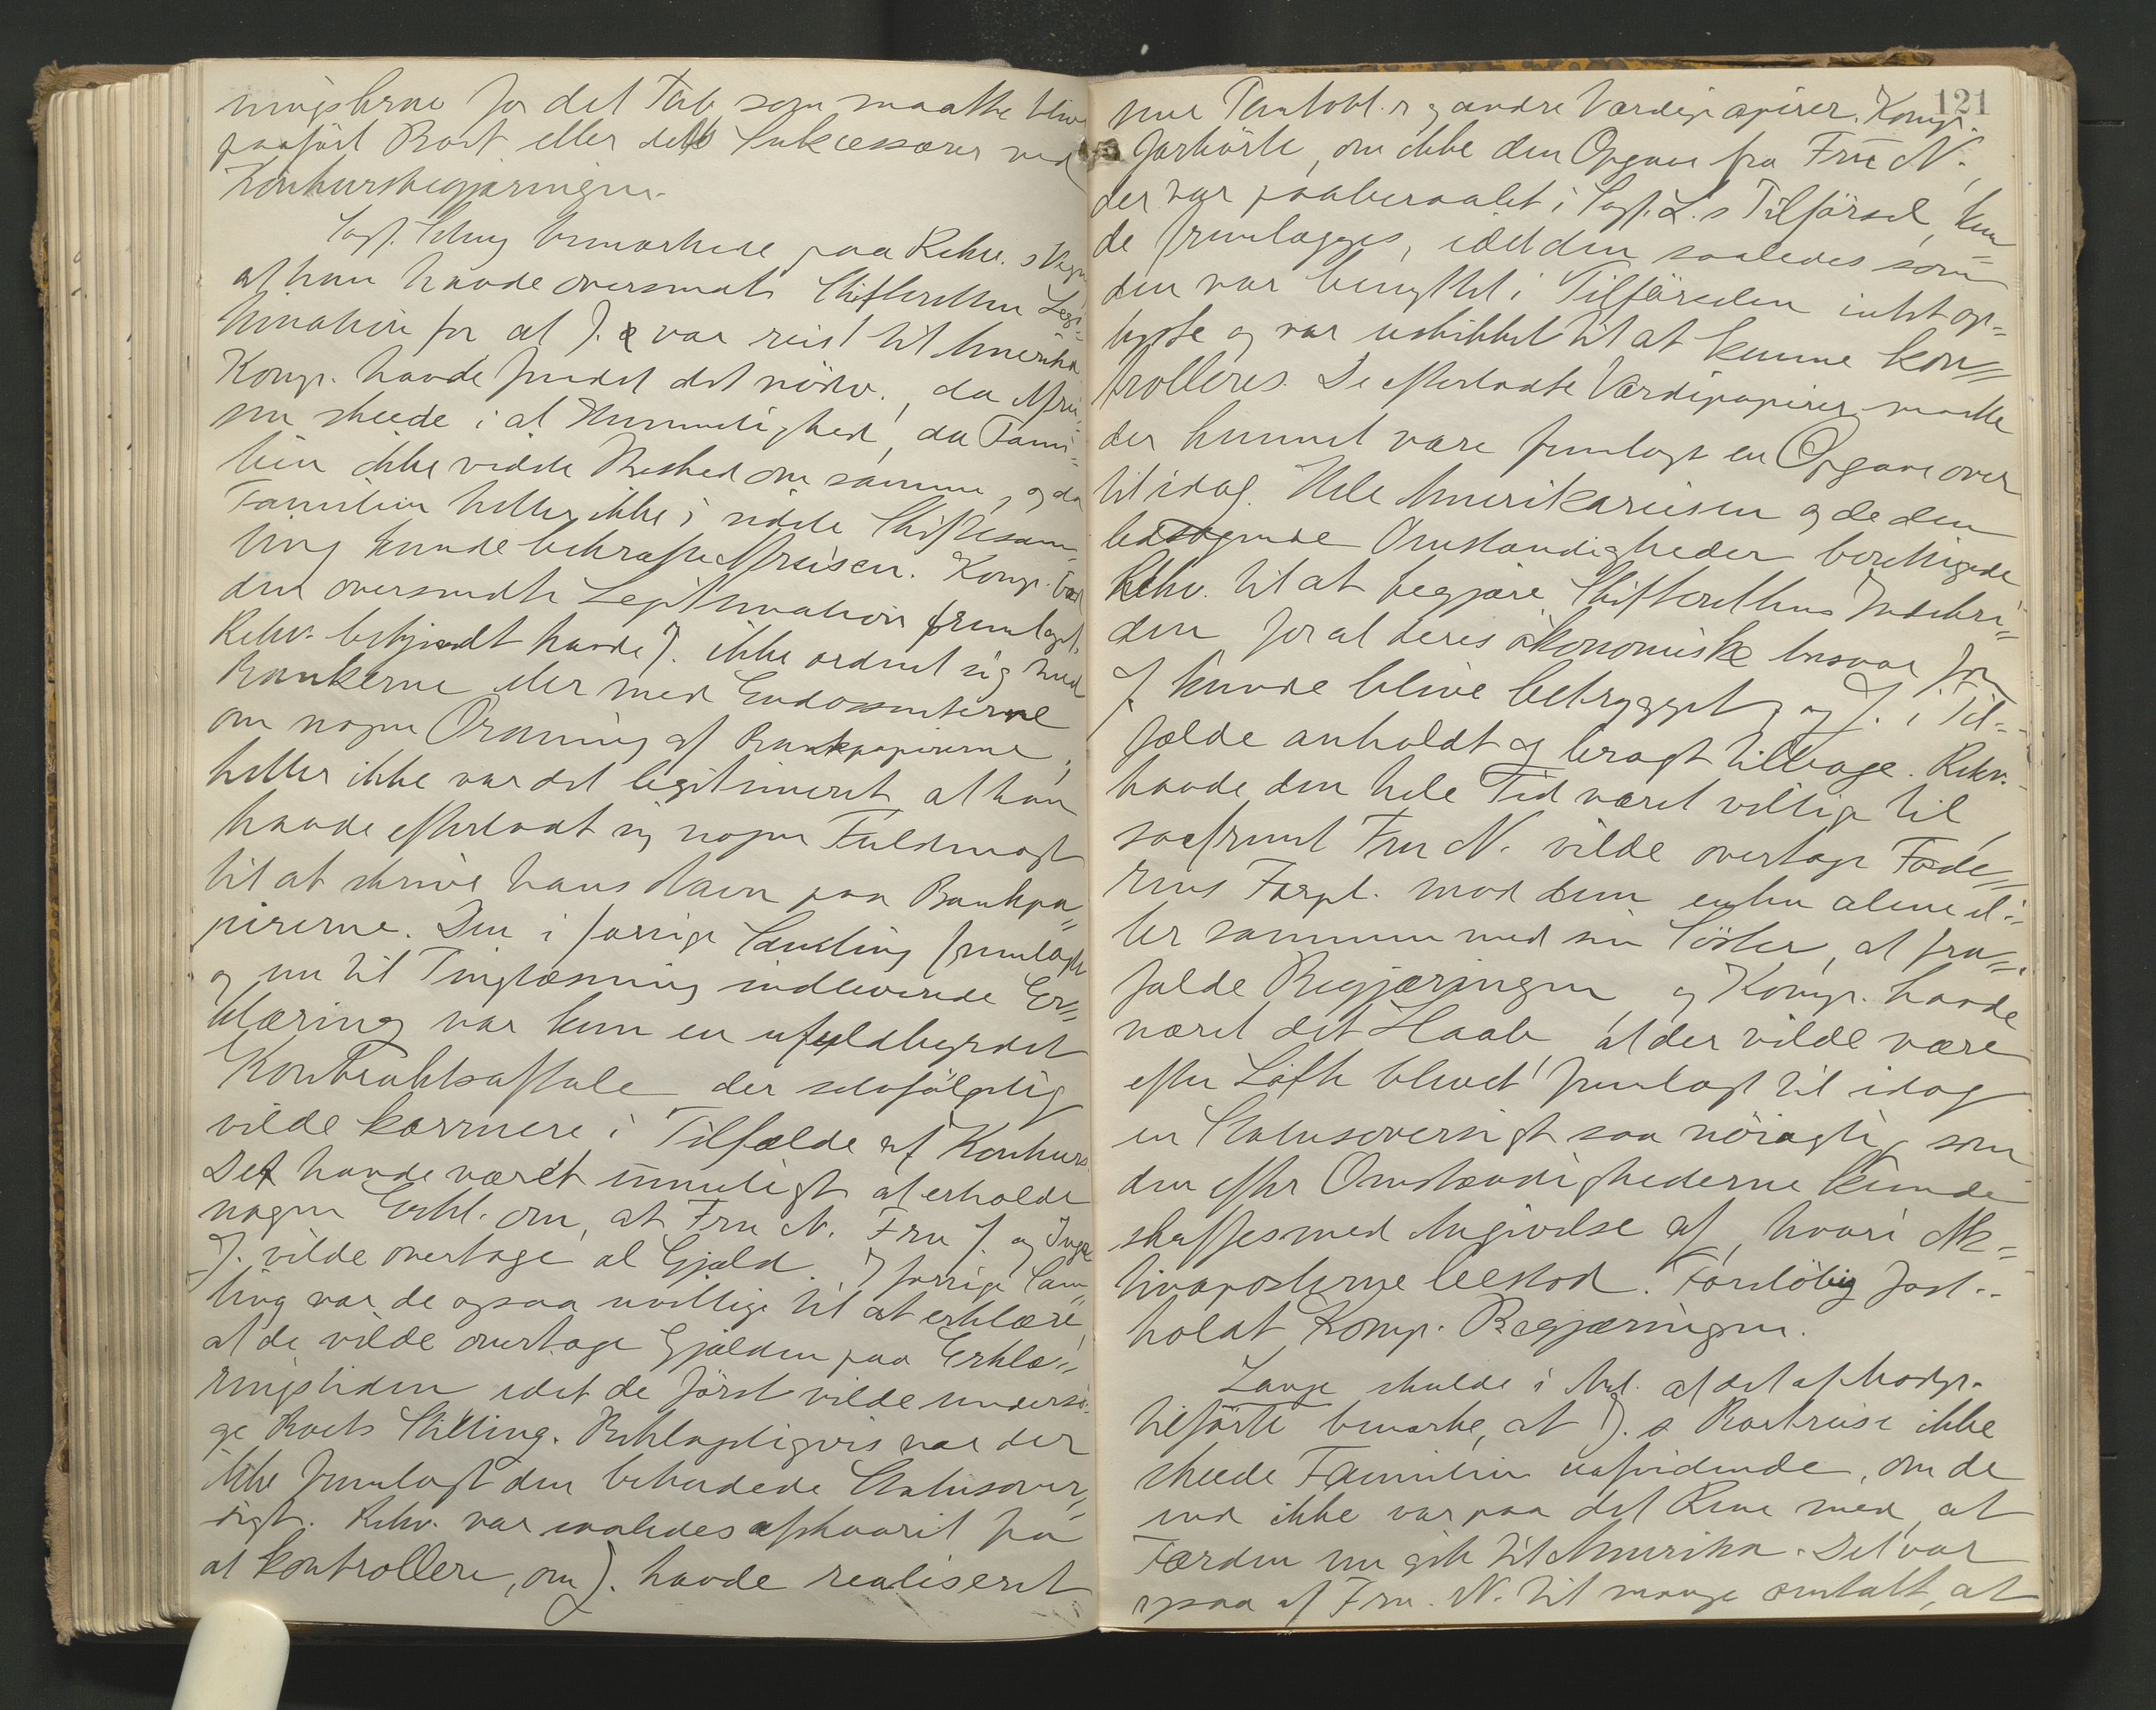 ningsherne for det Tab, som maatte blive
paaført Boet eller dets Sukcessorer ved
Konkursbegjæringen.
Sagf. Schwy bemærkede paa Rekv.s Vegne
at han havde oversendt Skifteretten Legi=
timation for at J. var reist til Amerika
Komp. havde fundet det nödv., da Afrei=
sen skeede i al Hemmelighed, da Fami=
lien ikke vidste Besked om samme, og da
Familien heller ikke i sidste Skiftesam=
ling kunde bekræfte Afreisen. Komp. bad
den oversendte Legitimation fremlagt.
Rekv. bekjendt havde J. ikke ordnet sig med
Bankerne eller med Endossenterne
om nogen Ordning af Bankpapirerne,
heller ikke var det legitimeret, at han
havde efterladt sig nogen Fuldmagt
til at skrive hans Navn paa Bankpa=
pirerne. Den i forrige Samling fremlagte
og nu til Tinglæsning indleverede Er=
klæring var kun en ufuldbyrdet
Kontraktsaftale der selvfölgelig
vilde kassere i Tilfælde af Konkurs.
Det havde været umuligt at erholde
nogen Erkl. om, at Fru N. Fru J. og Inga
J. vilde overtage al Gjæld. I forrige Sam=
ling var de ogsaa uvillige til at erklære,
at de vilde overtage Gjælden paa Erklæ=
ringstiden idet de först vilde undersö=
ge Boets Stilling. Beklageligvis var der
ikke fremlagt den bebudede Statusover=
sigt. Rekv. var saaledes afskaaret fra
at kontrollere, om J. havde realiseret
121
sine Pantobl.r og andre Værdipapirer. Komp.
forhörte, om ikke den Opgave fra Fru N.,
der var paaberaabt i Sagf. L.s Tilförsel, kun=
de fremlægges, idet den saaledes som
den var benyttet i Tilförselen intet op=
lyste og var uskikket til at kunne kon=
trolleres. De efterladte Værdipapirer maatte
der kunnet være fremlagt en Opgave over
til idag. Hele Amerikareisen og de den
ledsagende Omstændigheder berettigede
Rekv. til at begjære Skifterettens Indskri=
den for at deres ökonomiske Ansvar for
J. kunde blive betrygget, og J. i Til=
fælde anholdt og bragt tilbage. Rekv.
havde den hele Tid været villig til,
saafremt Fru N. vilde overtage Fade=
rens Forpl. mod dem enten alene el=
ler sammen med sin Söster, at fra=
falde Begjæringen, og Komp. havde
næret det Haab, at der vilde være
efter Löfte blevet fremlagt til idag
en Statusoversigt saa nöiagtig som
den efter Omstændighederne kunde
skaffes med Angivelse af, hvori Ak=
tivaposterne bestod. Foreløbig fast=
holdt Komp. Begjæringen.
Lange skulde i Anl. af det af Modp.
tilförte bemærke, at J.s Bortreise ikke
skeede Familien uafvidende, om de
end ikke var paa det Rene med, at
Færden nu gik til Amerika. Det var
ogsaa af Fru. N. til mange omtalt, at